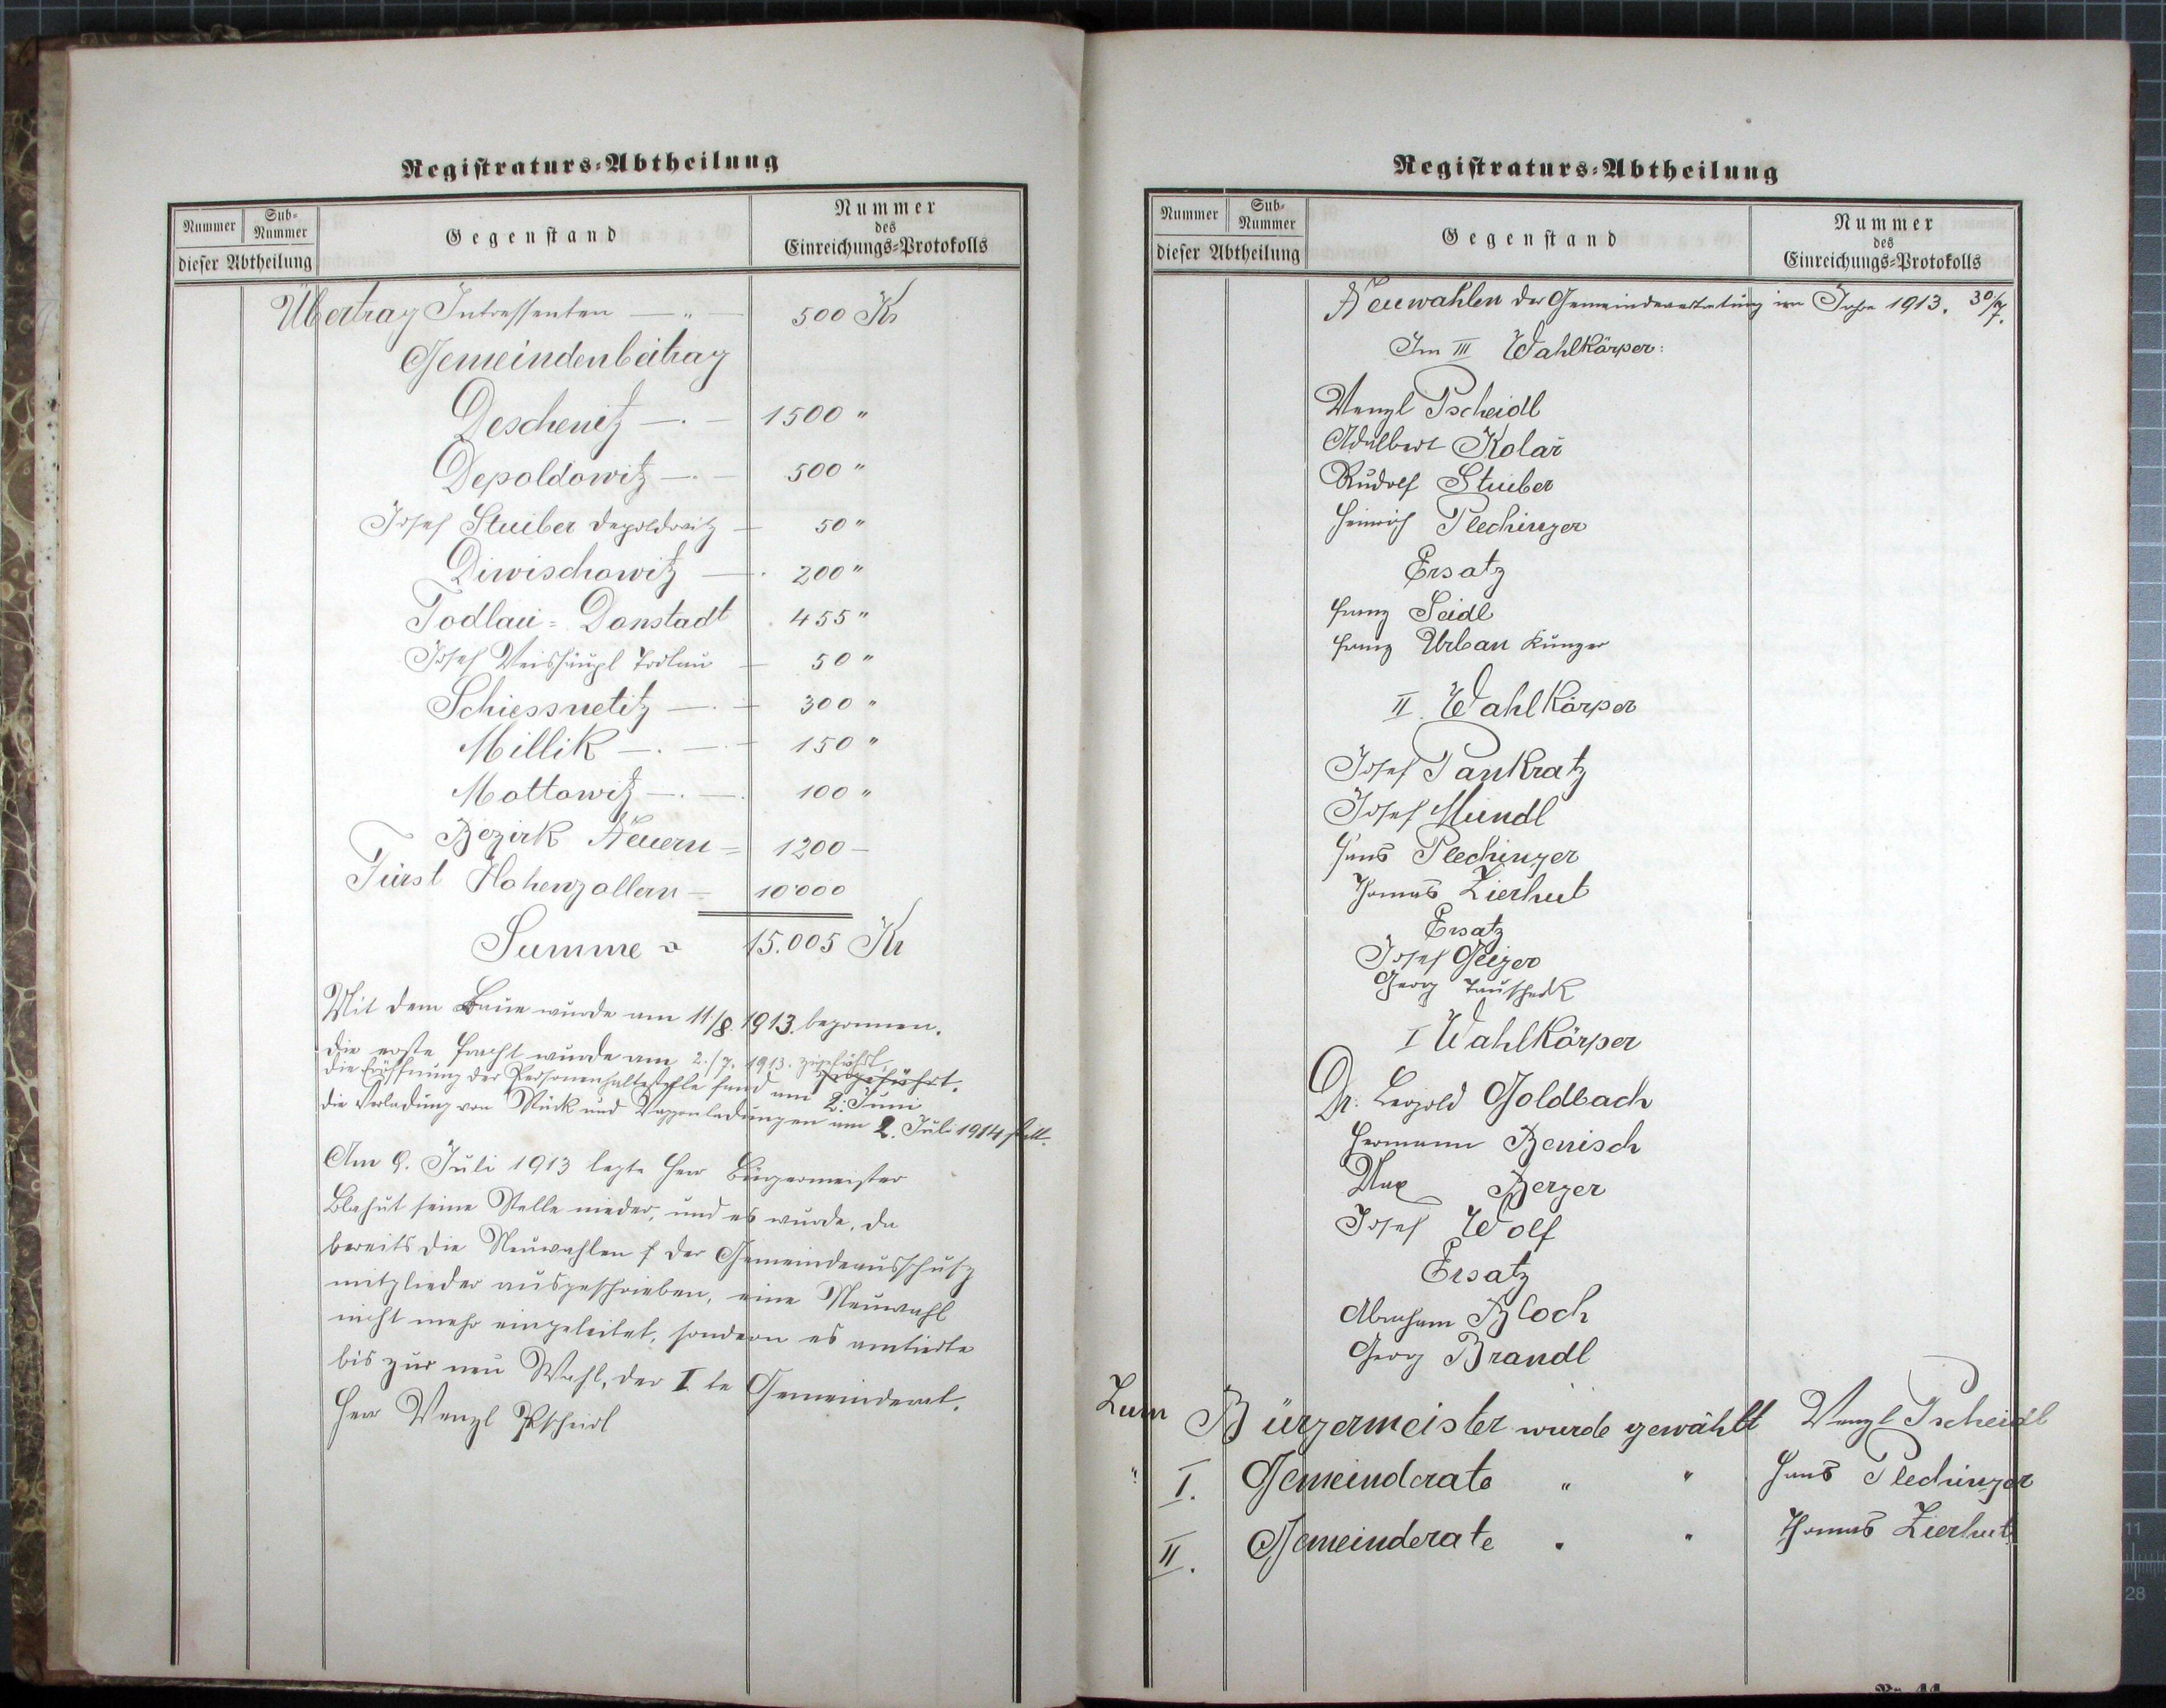 Registraturs-Abtheilung
Nummer
Sub-
Nummer
dieser Abtheilung
Gegenstand
Nummer
des
Einreichungs-Protokolls
Übertrag Intressenten — " — 500 Kr
Gemeindenbeitrag
Deschenitz —.— 1500 "
Depoldowitz —.— 500 "
Josef Stuiber Depoldowitz — 50 "
Diwischowitz —. 200 "
Todlau = Donstadt . 455 "
Josef Weishäupl Todlau — 50 "
Schiessnetitz —.— 300 "
Millik —.—.— 150 "
Mottowitz —.—. 100 "
Bezirk Neuern = 1200 —
Fürst Hohenzollern = 10'000
Summe = 15.005 Kr
Mit dem Baue wurde am 11./8. 1913. begonnen.
Die erste Fracht wurde am 2./7. 1913. zugeführt
zugeführt.
Die Eröffnung der Personenhaltestelle fand am 2. Juni
die Verladung von Stück und Waggonladungen am 2. Juli 1914 statt.
Am 9. Juli 1913 legte Herr Bürgermeister
Blahut seine Stelle nieder, und es wurde, da
bereits die Neuwahlen f der Gemeindeausschuß
mitglieder ausgeschrieben, eine Neuwahl
nicht mehr eingeleitet, sondern es amtierte
bis zur neu Wahl, der I te Gemeinderat.
Herr Wenzl Pscheidl
Registraturs-Abtheilung
Nummer
Sub-
Nummer
dieser Abtheilung
Gegenstand
Nummer
des
Einreichungs-Protokolls
Neuwahlen der Gemeindevertretung im Jahre 1913. 30/7.
Im III Wahlkörper:
Wenzl Pscheidl
Adalbert Kolař
Rudolf Stuiber
Heinrich Plechinger
Ersatz
Franz Seidl
Franz Urban Künger
II. Wahlkörper
Josef Pankratz
Josef Mundl
Hans Plechinger
Thomas Zierhut
Ersatz
Josef Geiger
Georg Tauschek
I Wahlkörper
Dr. Leopold Goldbach
Hermann Benisch
Max Berger
Josef Wolf
Ersatz
Abraham Bloch
Georg Brandl
Zum Bürgermeister wurde gewählt Wenzl Pscheidl
" I. Gemeinderate " " Hans Plechinger
II. Gemeinderate " " Thomas Zierhut